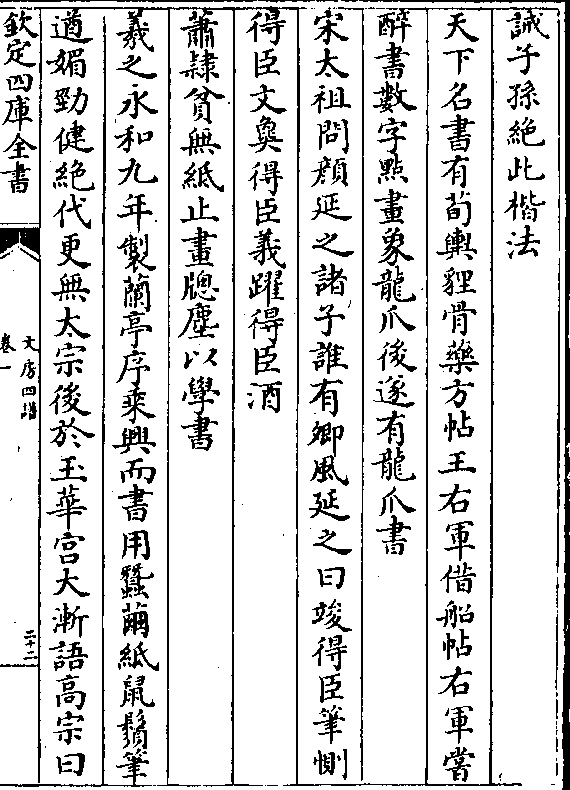 誡子孫絶此楷法
天下名書有荀輿貍骨藥方帖王右軍借船帖右軍嘗
醉書數字點畫象龍爪後遂有龍爪書
宋太祖問顔延之諸子誰有卿風延之曰竣得臣筆惻
得臣文㚟得臣義躍得臣酒
蕭隷貧無紙止畫牕塵以學書
羲之永和九年製蘭亭序乘興而書用蠶繭紙鼠鬚筆
遒媚勁健絶代更無太宗後於玉華宫大漸語高宗曰
欽定四庫全書
文房四譜
卷一
二十二